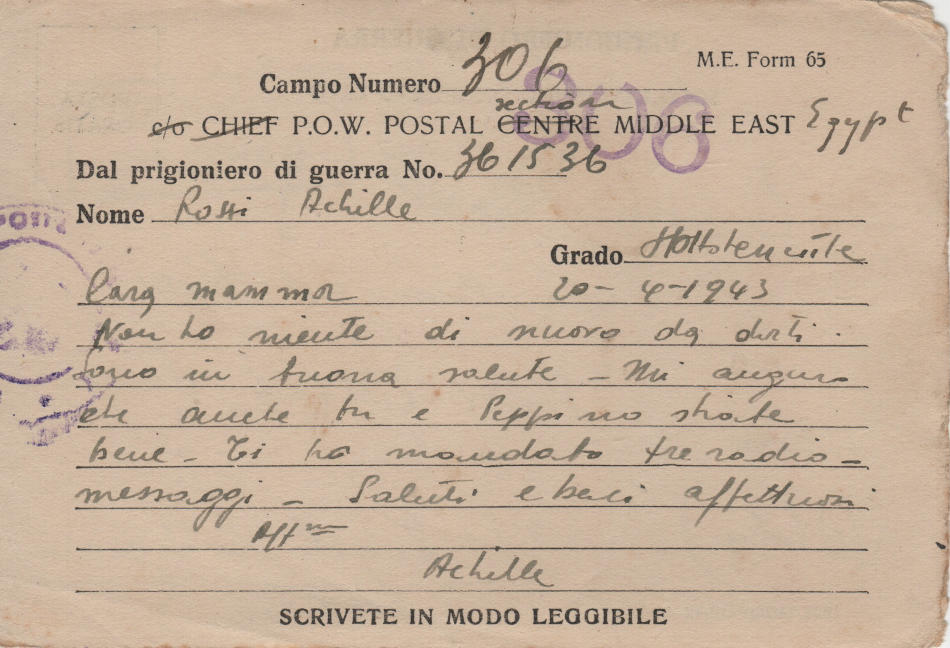 M.E. Form 65
Campo Numero 306
308
section
c/o CHIEF P.O.W. POSTAL CENTRE MIDDLE EAST Egypt
Dal prigioniero di guerra No. 361536
Nome Rossi Achille
Grado Sottotenente
Cara mamma 20-4-1943
Non ho niente di nuovo da dirti.
Sono in buona salute - Mi auguro
che anche tu e Peppino stiate
bene - Ti ho mandato tre radio-
messaggi - Saluti e baci affettuosi
Aff mo
Achille
SCRIVETE IN MODO LEGGIBILE